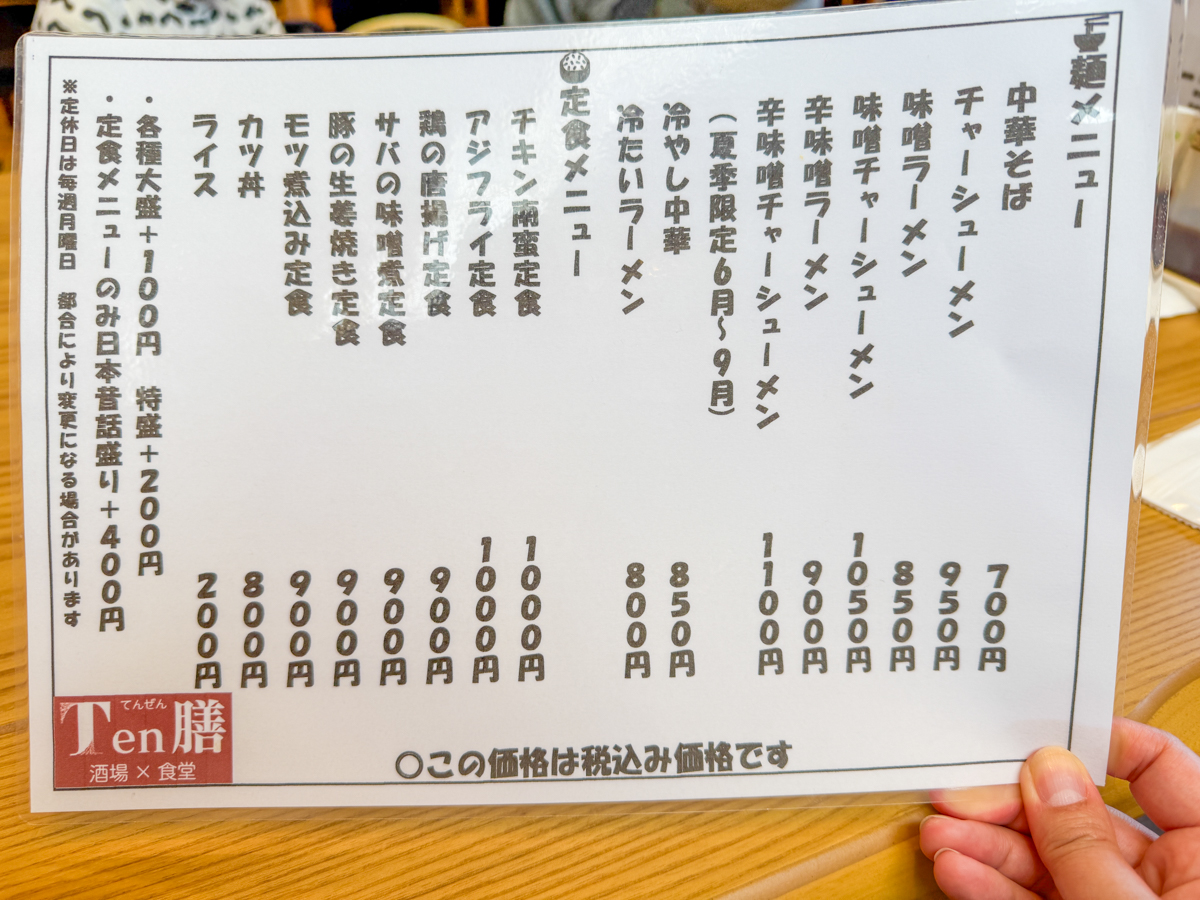 麺メニュー
中華そば 700円
チャーシューメン 950円
味噌ラーメン 850円
味噌チャーシューメン 1050円
辛味噌ラーメン 900円
辛味噌チャーシューメン 1100円
(夏季限定6月~9月)
冷やし中華 850円
冷たいラーメン 800円
定食メニュー
チキン南蛮定食 1000円
アジフライ定食 1000円
鶏の唐揚げ定食 900円
サバの味噌煮定食 900円
豚の生姜焼き定食 900円
モツ煮込み定食 900円
カツ丼 800円
ライス 200円
・各種大盛+100円 特盛+200円
・定食メニューのみ日本昔話盛り+400円
※定休日は毎週月曜日 都合により変更になる場合があります
○この価格は税込み価格です
てんぜん
Ten膳
酒場×食堂